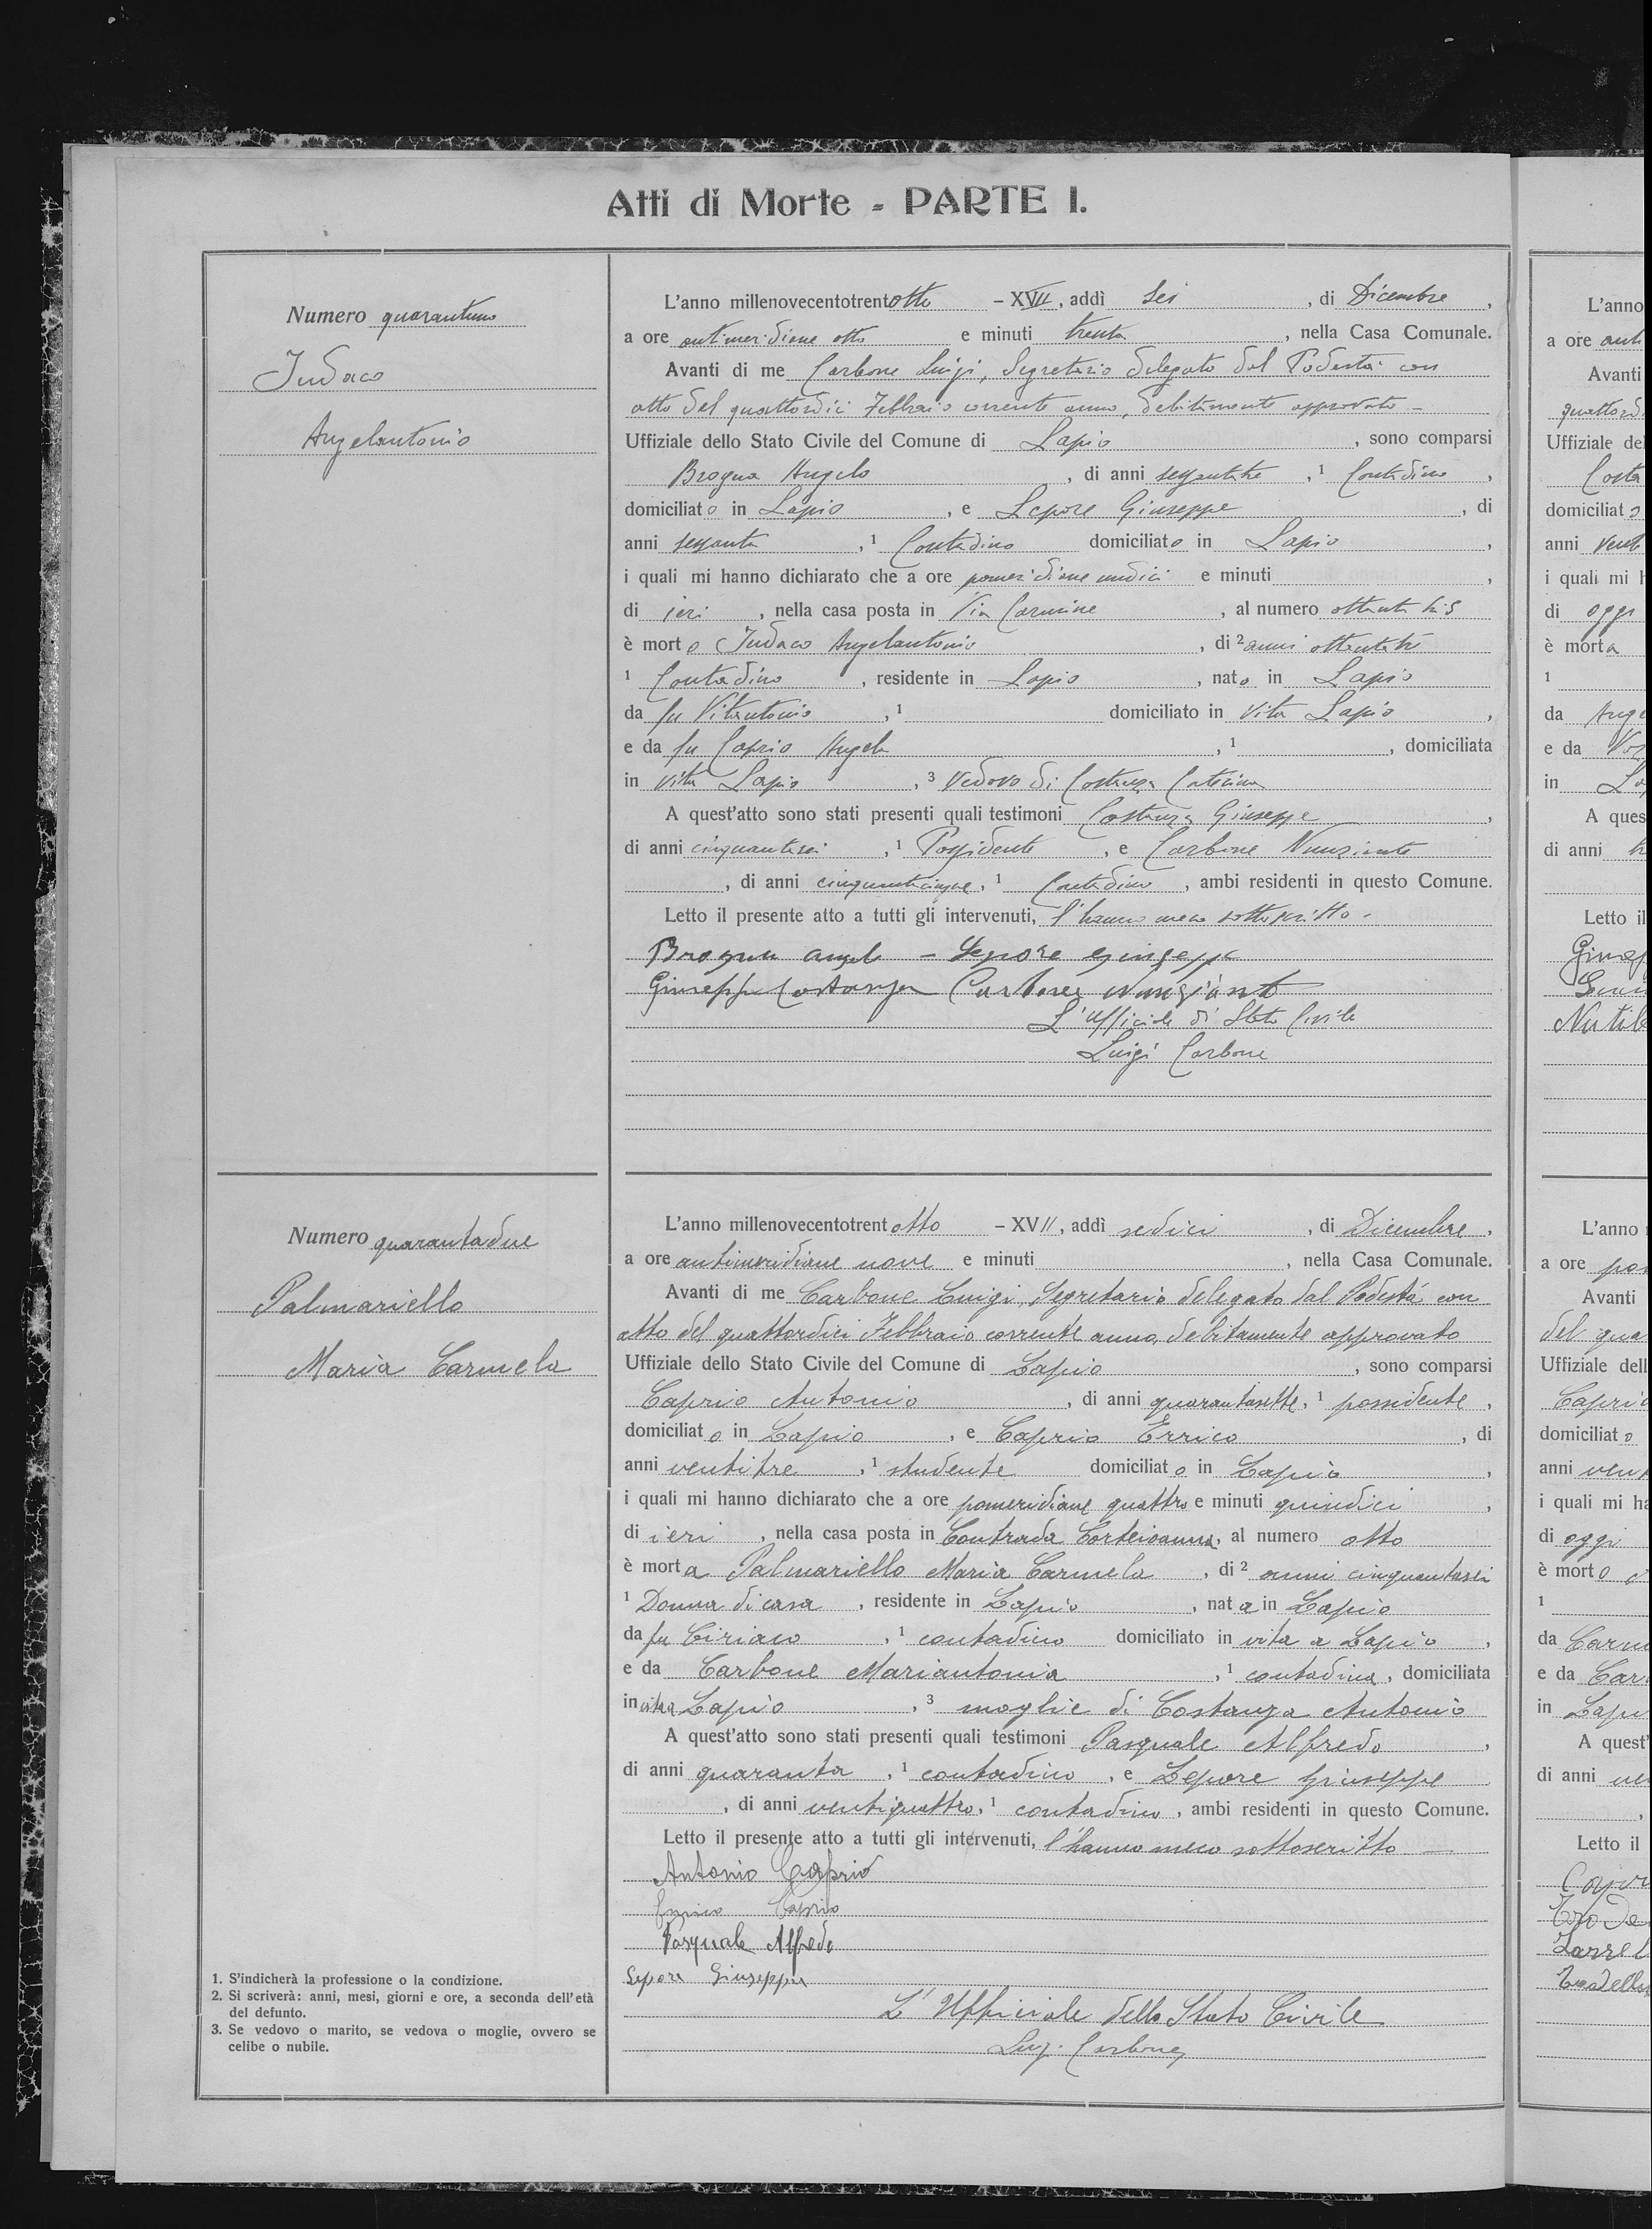 Atti di Morte - PARTE I.
Numero quarantuno
Iudaco
Angelantonio
L'anno millenovecentotrentotto - XVII, addì sei, di Dicembre,
a ore antimeridiane otto e minuti trenta, nella Casa Comunale.
Avanti di me Carbone Luigi, Segretario delegato dal Podestà con
atto del quattordici Febbraio corrente anno, debitamente approvato -
Uffiziale dello Stato Civile del Comune di Lapio, sono comparsi
Brogna Angelo, di anni sessantatre, 1 Contadino,
domiciliato in Lapio, e Lepore Giuseppe, di
anni sessanta, 1 Contadino domiciliato in Lapio,
i quali mi hanno dichiarato che a ore pomeridiane undici e minuti,
di ieri, nella casa posta in Via Carmine, al numero
è morto Iudaco Angelantonio, di 2 anni ottantatre
1 Contadino, residente in Lapio, nato in Lapio
da fu Vitantonio, 1 domiciliato in vita Lapio,
e da fu Caprio Angela, 1, domiciliata
in vita Lapio, 3 Vedovo di Costanza Caterina
A quest'atto sono stati presenti quali testimoni Costanza Giuseppe,
di anni cinquantasei, 1 Possidente, e Carbone Nunziante
, di anni cinquantacinque, 1 Contadino, ambi residenti in questo Comune.
Letto il presente atto a tutti gli intervenuti, l'hanno meco sottoscritto -
Brogna Angelo - Lepore Giuseppe
Giuseppe Costanza Carbone Nunziant
L'Ufficiale di Stato Civile
Luigi Carbone
Numero quarantadue
Palmariello
Maria Carmela
L'anno millenovecentotrentotto - XVII, addì sedici, di Dicembre,
a ore antimeridiane nove e minuti, nella Casa Comunale.
Avanti di me Carbone Luigi, Segretario delegato dal Podestà con
atto del quattordici Febbraio corrente anno, debitamente approvato
Uffiziale dello Stato Civile del Comune di Lapio, sono comparsi
Caprio Antonio, di anni quarantasette, 1 possidente,
domiciliato in Lapio, e Caprio Errico, di
anni ventitre, 1 studente domiciliato in Lapio,
i quali mi hanno dichiarato che a ore pomeridiane quattro e minuti quindici,
di ieri, nella casa posta in Contrada Corteioanna, al numero otto
è morta Palmariello Maria Carmela, di 2 anni cinquantasei
1 Donna di casa, residente in Lapio, nata in Lapio
da fu Ciriaco, 1 contadino domiciliato in vita a Lapio,
e da Carbone Mariantonia, 1 contadina, domiciliata
in vita Lapio, 3 moglie di Costanza Antonio
A quest'atto sono stati presenti quali testimoni Pasquale Alfredo,
di anni quaranta, 1 contadino, e Lepore Giuseppe
, di anni ventiquattro, 1 contadino, ambi residenti in questo Comune.
Letto il presente atto a tutti gli intervenuti, l'hanno meco sottoscritto -
Antonio Caprio
Errico Caprio
Pasquale Alfredo
Lepore Giuseppe
L'Ufficiale dello Stato Civile
Luigi Carbone
1. S'indicherà la professione o la condizione.
2. Si scriverà: anni, mesi, giorni e ore, a seconda dell'età
del defunto.
3. Se vedovo o marito, se vedova o moglie, ovvero se
celibe o nubile.
L'anno
a ore
Avanti
Uffiziale de
Costa
domiciliato
anni
i quali mi
di oggi
è morta
1
da Ange
e da
in
A ques
di anni
Letto il
L'anno
a ore
Avanti
del qua
Uffiziale dell
Caprio
domiciliato
anni
i quali mi ha
di oggi
è morto
1
da Carm
e da Car
in Lapi
A quest'
di anni
Letto il